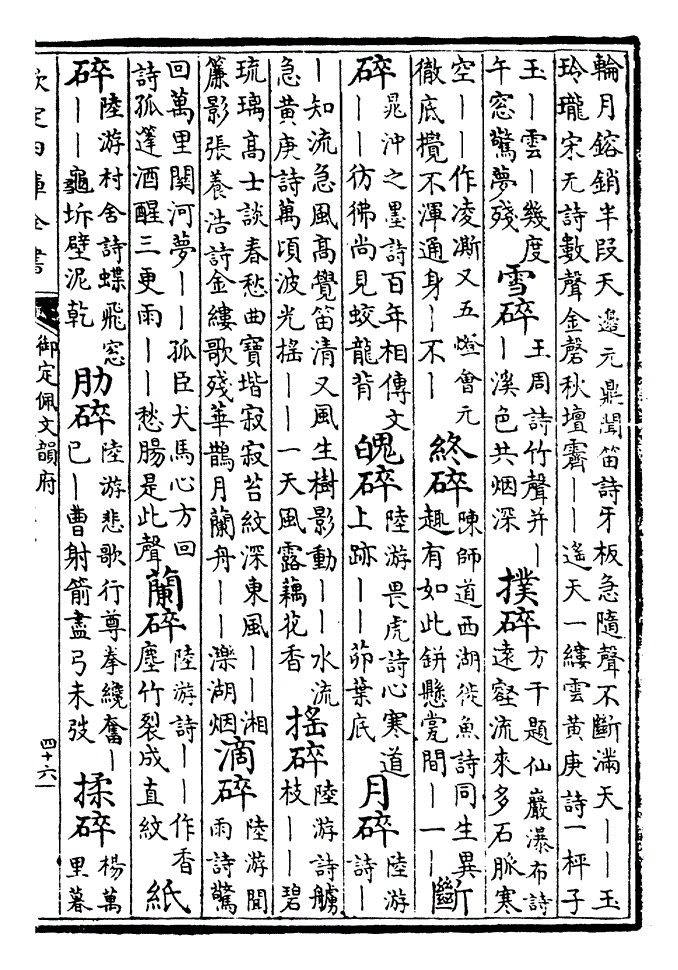 輪月鎔銷半段天邊元鼎聞笛詩牙板急隨聲不斷滿天——玉
玲瓏宋无詩數聲金磬秋壇霽——遙天一縷雲黃庚詩一枰子
玉—雲—幾度
午窓驚夢殘
雪碎
玉周詩竹聲并—
—溪色共烟深
撲碎
方干題仙巖瀑布詩
遠壑流來多石脈寒
空——作凌澌又五燈會元
徹底攪不渾通身—不—
終碎
陳師道西湖徙魚詩同生異
趣有如此缾懸甍間—一—
斷
碎
晁沖之墨詩百年相傳文
——彷彿尚見蛟龍背
魄碎
陸游畏虎詩心寒道
上跡——茆葉底
月碎
陸游
詩—
—知流急風高覺笛清又風生樹影動——水流
急黃庚詩萬頃波光搖——一天風露藕花香
搖碎
陸游詩艣
枝——碧
琉璃高士談春愁曲寶堦寂寂苔紋深東風——湘
簾影張養浩詩金縷歌殘華鵲月蘭舟——濼湖烟
滴碎
陸游聞
雨詩驚
回萬里關河夢——孤臣犬馬心方回
詩孤篷酒醒三更雨——愁腸是此聲
蘭碎
陸游詩——作香
塵竹裂成直紋
紙
碎
陸游村舍詩蝶飛窓
——龜坼壁泥乾
肋碎
陸游悲歌行尊拳纔奮—
已—曹射箭盡弓未弢
揉碎
楊萬
里暮
欽定四庫全書
御定佩文韻府
四十六